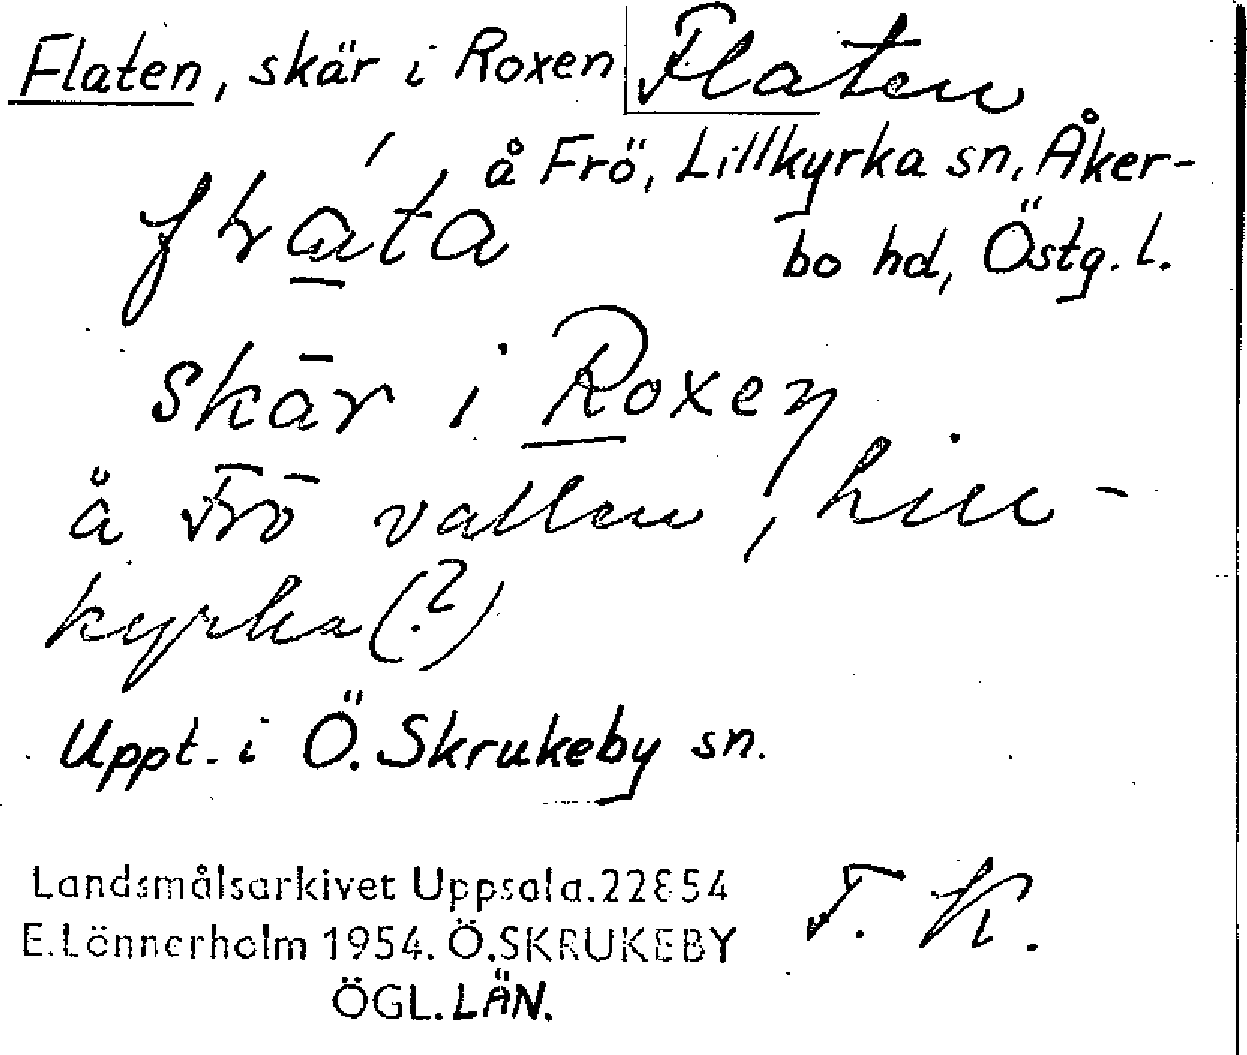 Flaten, skär i Roxen Flaten
å Frö, Lillkyrka sn, Åker-
bo hd, Östg. l.
skär i Roxen
å Frö vallen, Lill-
kyrka (?)
Uppt. i Ö. Skrukeby sn.
Landsmålsarkivet Uppsala. 22854
E. Lönnerholm 1954. Ö. SKRUKEBY
ÖGL. LÄN.
F. K.